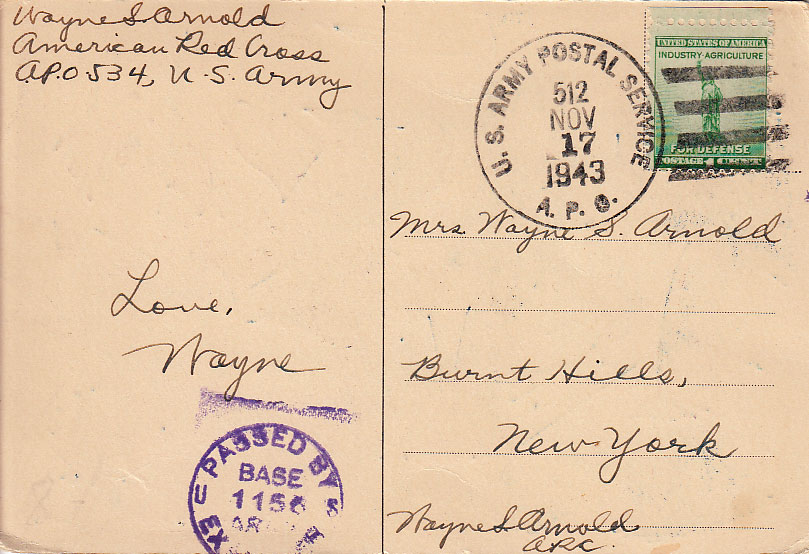 Wayne S. Arnold
American Red Cross
A.P.O 534, U.S. Army
Love,
Wayne
PASSED BY
BASE
1156
U. S. ARMY POSTAL SERVICE
512
NOV
17
1943
A. P. O.
UNITED STATES OF AMERICA
INDUSTRY-AGRICULTURE
FOR DEFENSE
POSTAGE 1 CENT
Mrs. Wayne S. Arnold
Burnt Hills,
New York
Wayne S Arnold
ARC.